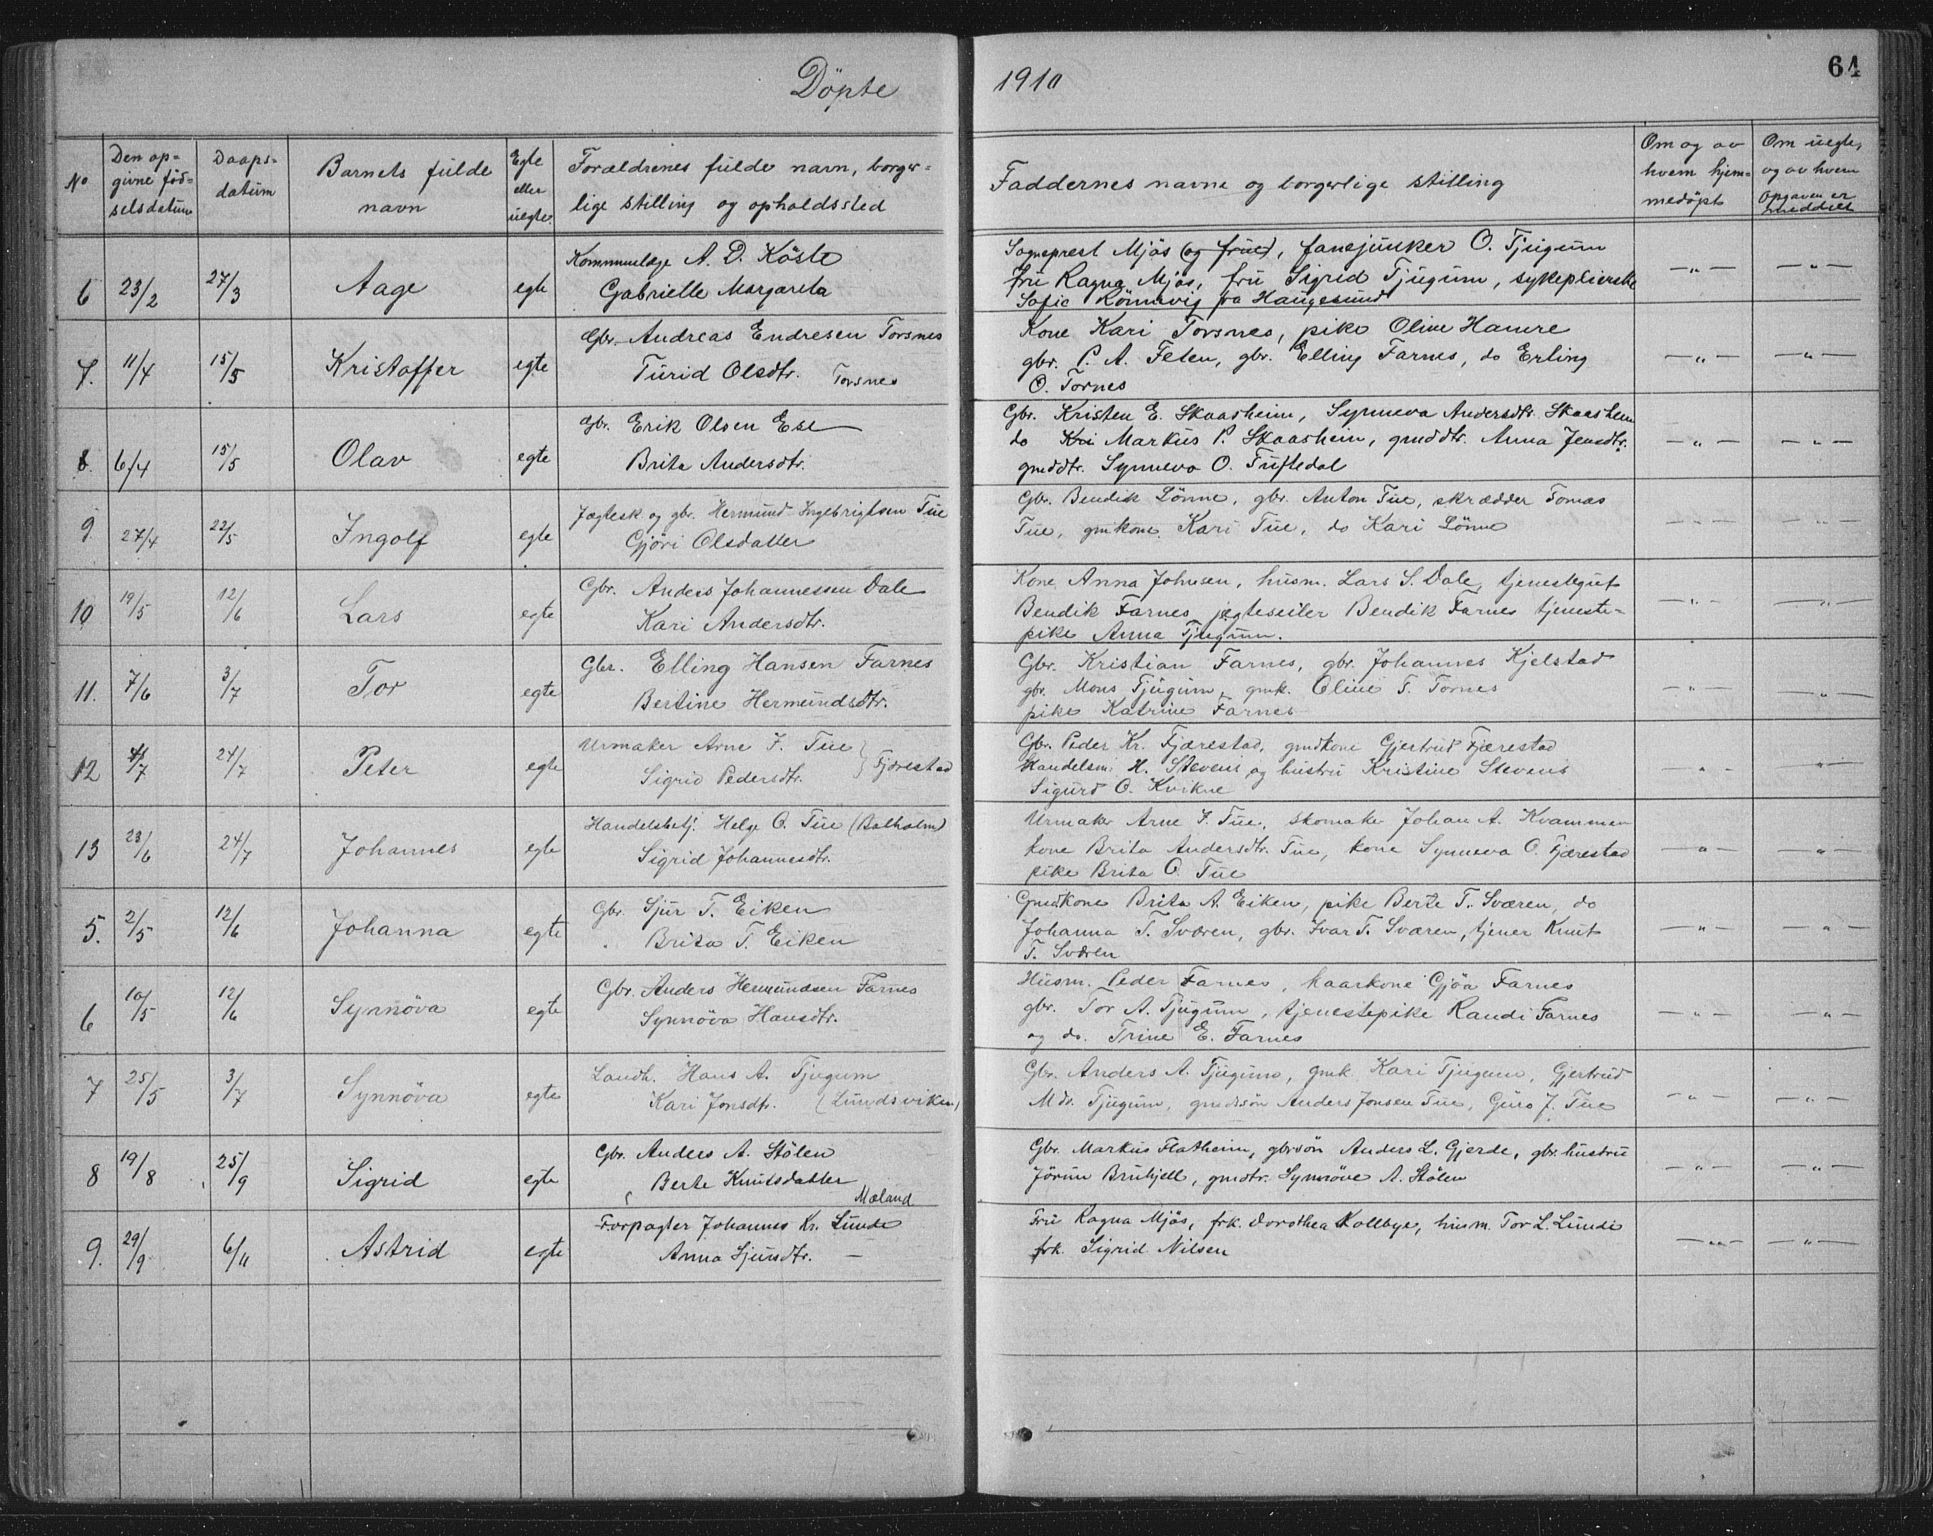 Döpte 1910
64
No
Den op-
givne föd-
selsdatum
Daaps-
datum
Barnets fulde
navn
Egte
eller
uegte
Forældrenes fulde navn, borger-
lige stilling og opholdssted
Faddernes navne og borgerlige stilling
Om og av
hvem hjem-
medöpt
Om uegte,
og av hvem
opgaven er
meddelt
6 23/2 27/3 Aage egte
Kommunelæge A. D. Köste
Gabrielle Margareta
Sogneprest Mjös (og frue), fanejunker O. Tjugum
fru Ragna Mjös, fru Sigrid Tjugum, sykepleierske
Sofie Rönnevig fra Haugesund
-"- -"-
7. 11/4 15/5 Kristoffer egte
Gbr. Andreas Endresen Torsnes
Turid Olsdtr. Torsnes
Kone Kari Torsnes, pike Oline Hamre
gbr. P. A. Feten, gbr. Elling Farnes, do Erling
O. Tornes
-"- -"-
8. 6/4 15/5 Olav egte
Gbr. Erik Olsen Ese
Brita Andersdtr.
Gbr. Kristen E. Skaasheim, Synneva Andersdtr. Skaasheim
do Markus P. Skaasheim, gmddtr. Anna Jensdtr.
gmddtr. Synneva O. Tuftedal
-"- -"-
9. 27/4 22/5 Ingolf egte
Jægtesk. og gbr. Hermund Ingebrigtsen Tue
Gjöri Olsdatter
Gbr. Bendik Lönne, gbr. Anton Tue, skrædder Tomas
Tue, gmkone Kari Tue, do Kari Lönne
-"- -"-
10 19/5 12/6 Lars egte
Gbr. Anders Johannessen Dale
Kari Andersdtr.
Kone Anna Johnsen, husm. Lars S. Dale, tjenestegut
Bendik Farnes, jegteseiler Bendik Farnes tjeneste-
pike Anna Tjugum.
-"- -"-
11. 7/6 3/7 Tor egte
Gbr. Elling Hansen Farnes
Bertine Hermundsdtr.
Gbr. Kristian Farnes, gbr. Johannes Kjelstad
gbr. Mons Tjugum, gmk. Oline T. Tornes
pike Katrine Farnes
-"- -"-
12 /7 24/7 Peter egte
Urmaker Arne J. Tue
Sigrid Pedersdtr. } Fjærestad
Gbr. Peder Kr. Fjærestad, gmdkone Gjertrud Fjærestad
Handelsm. H. Stevens og hustru Kristine Stevens
Sigurd O. Kvikne
-"- -"-
13 23/6 24/7 Johannes egte
Handelsbetj. Helge O. Tue (Balholm)
Sigrid Johannesdtr.
Urmaker Arne J. Tue, skomaker Johan A. Kvammen
kone Brita Andersdtr. Tue, kone Synneva O. Fjærestad
pike Brita O. Tue
-"- -"-
5. 2/5 12/6 Johanna egte
Gbr. Sjur T. Eiken
Brita T. Eiken
Gmdkone Brita A. Eiken, pike Berte T. Sværen, do
Johanna T. Sværen, gbr. Ivar T. Sværen, tjener Knut
T. Sværen
-"- -"-
6 10/5 12/6 Synnöva egte
Gbr. Anders Hermundsen Farnes
Synnöva Hansdtr.
Husm. Peder Farnes, kaarkone Gjöa Farnes
gbr. Tor A. Tjugum, tjenestepike Randi Farnes
og do. Trine E. Farnes
-"- -"-
7 25/5 3/7 Synnöva egte
Landh. Hans A. Tjugum
Kari Jonsdtr. (Lundsviken)
Gbr. Anders A. Tjugum, gmk. Kari Tjugum, Gjertrud
M.dtr. Tjugum, gmdssön Anders Jonsen Tue, Guro J. Tue
-"- -"-
8 19/8 25/9 Sigrid egte
Gbr. Anders A. Stölen
Berte Knutsdatter
Gbr. Markus Flatheim, gbrsön Anders L. Gjerde, gbr.hustru
Jörun Bruhjell, gmdtr. Synnöve A. Stölen
-"- -"-
9. 29/9 6/11 Astrid egte
Mæland
Forpagter Johannes Kr. Lunde
Anna Sjursdtr. —
Fru Ragna Mjös, frk. Dorothea Kollbye, husm. Tor L. Lunde
frk. Sigrid Nilsen
-"- -"-